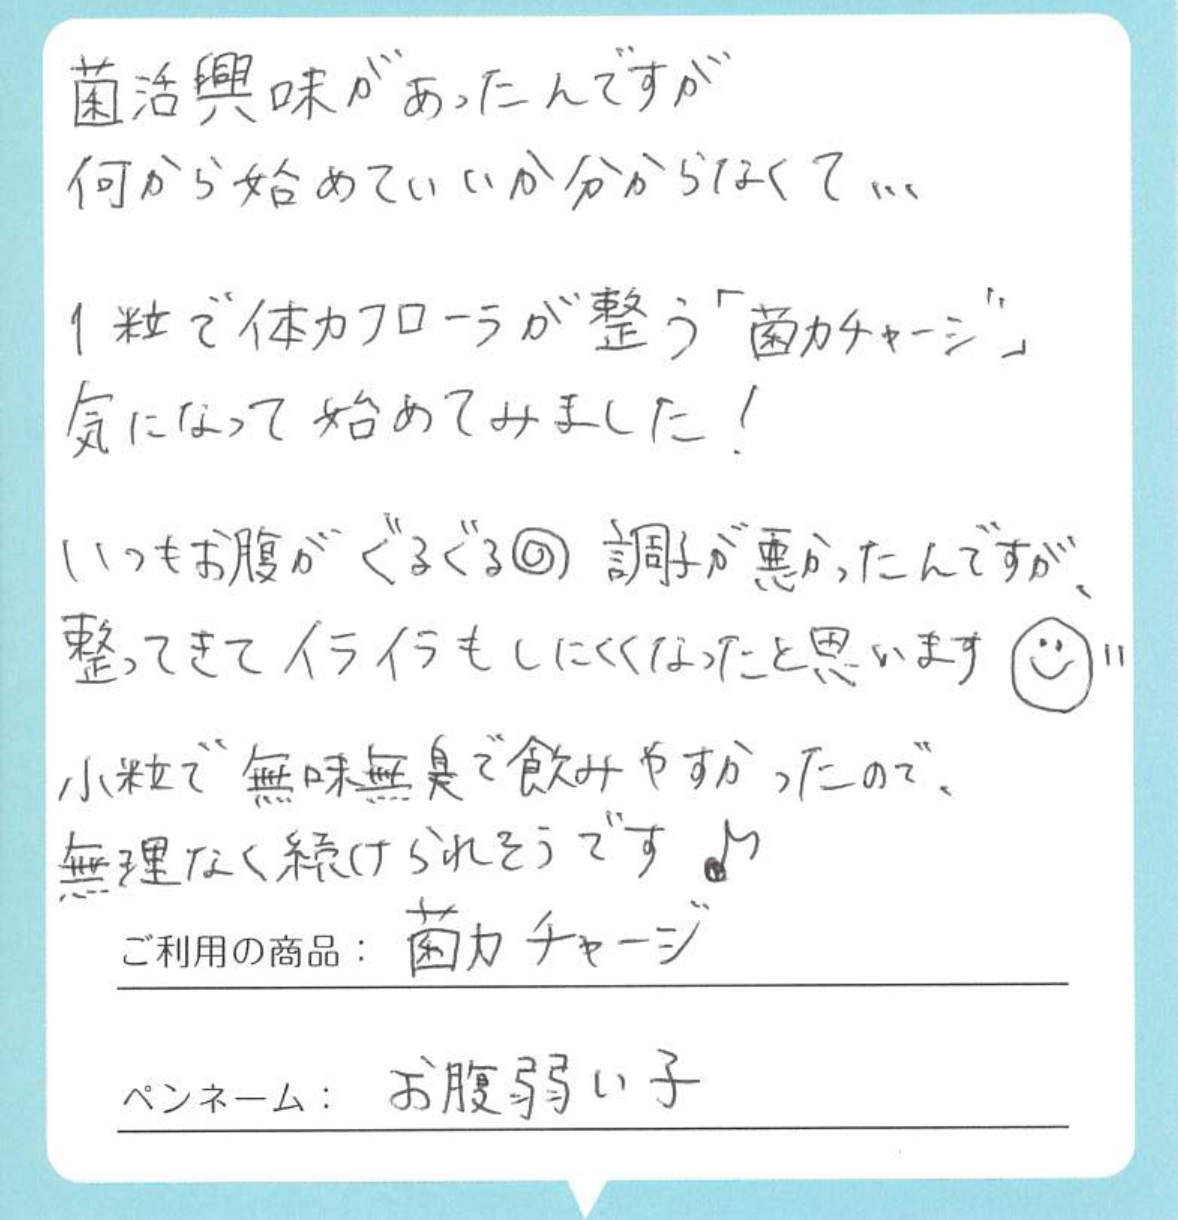 菌活興味があったんですが
何から始めていいか分からなくて...
1粒で体力フローラが整う「菌力チャージ」
気になって始めてみました!
いつもお腹がぐるぐる 調子が悪かったんですが、
整ってきてイライラもしにくくなったと思います
小粒で無味無臭で飲みやすかったので、
無理なく続けられそうです♪
ご利用の商品: 菌力チャージ
ペンネーム: お腹弱い子